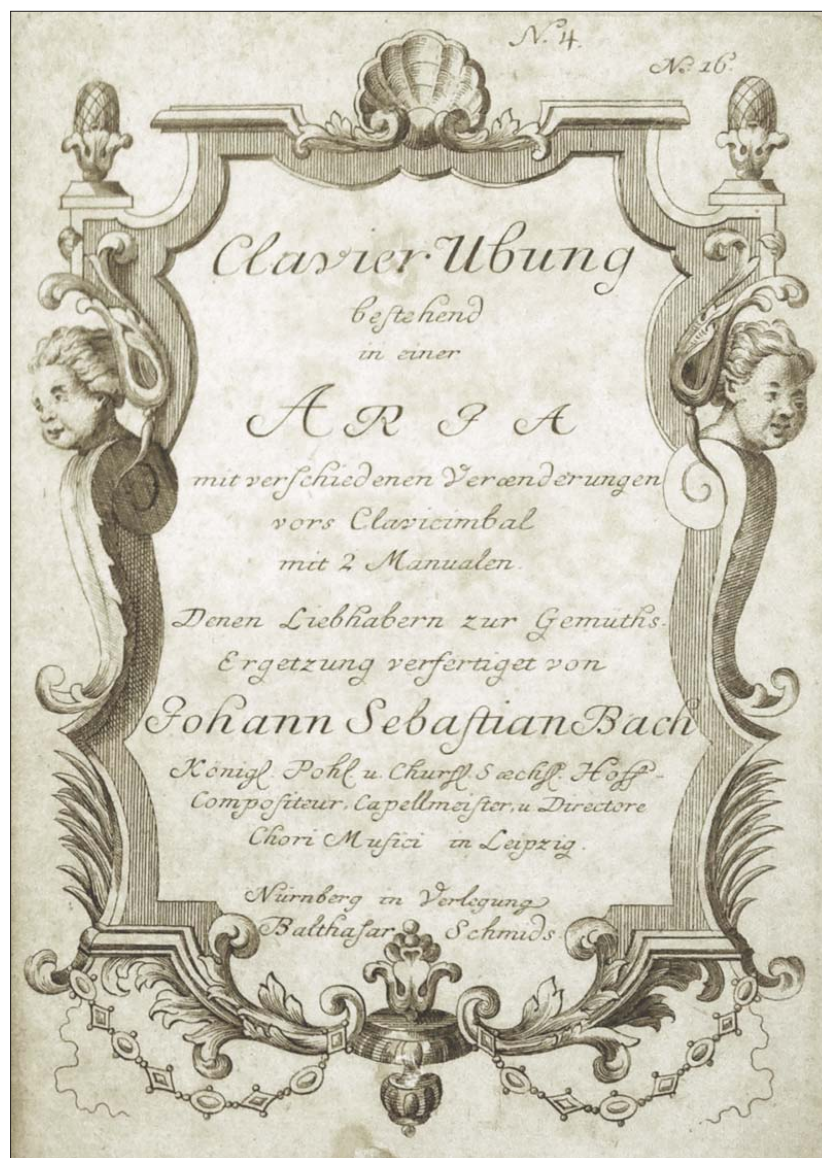 N. 4.
No. 16.
Clavier Ubung
bestehend
in einer
ARIA
mit verschiedenen Verænderungen
vors Clavicimbal
mit 2 Manualen.
Denen Liebhabern zur Gemüths-
Ergetzung verfertiget von
Johann Sebastian Bach
Königl. Pohl. u. Churfl. Sæchs. Hoff-
Compositeur, Capellmeister, u. Directore
Chori Musici in Leipzig.
Nürnberg in Verlegung
Balthasar Schmids